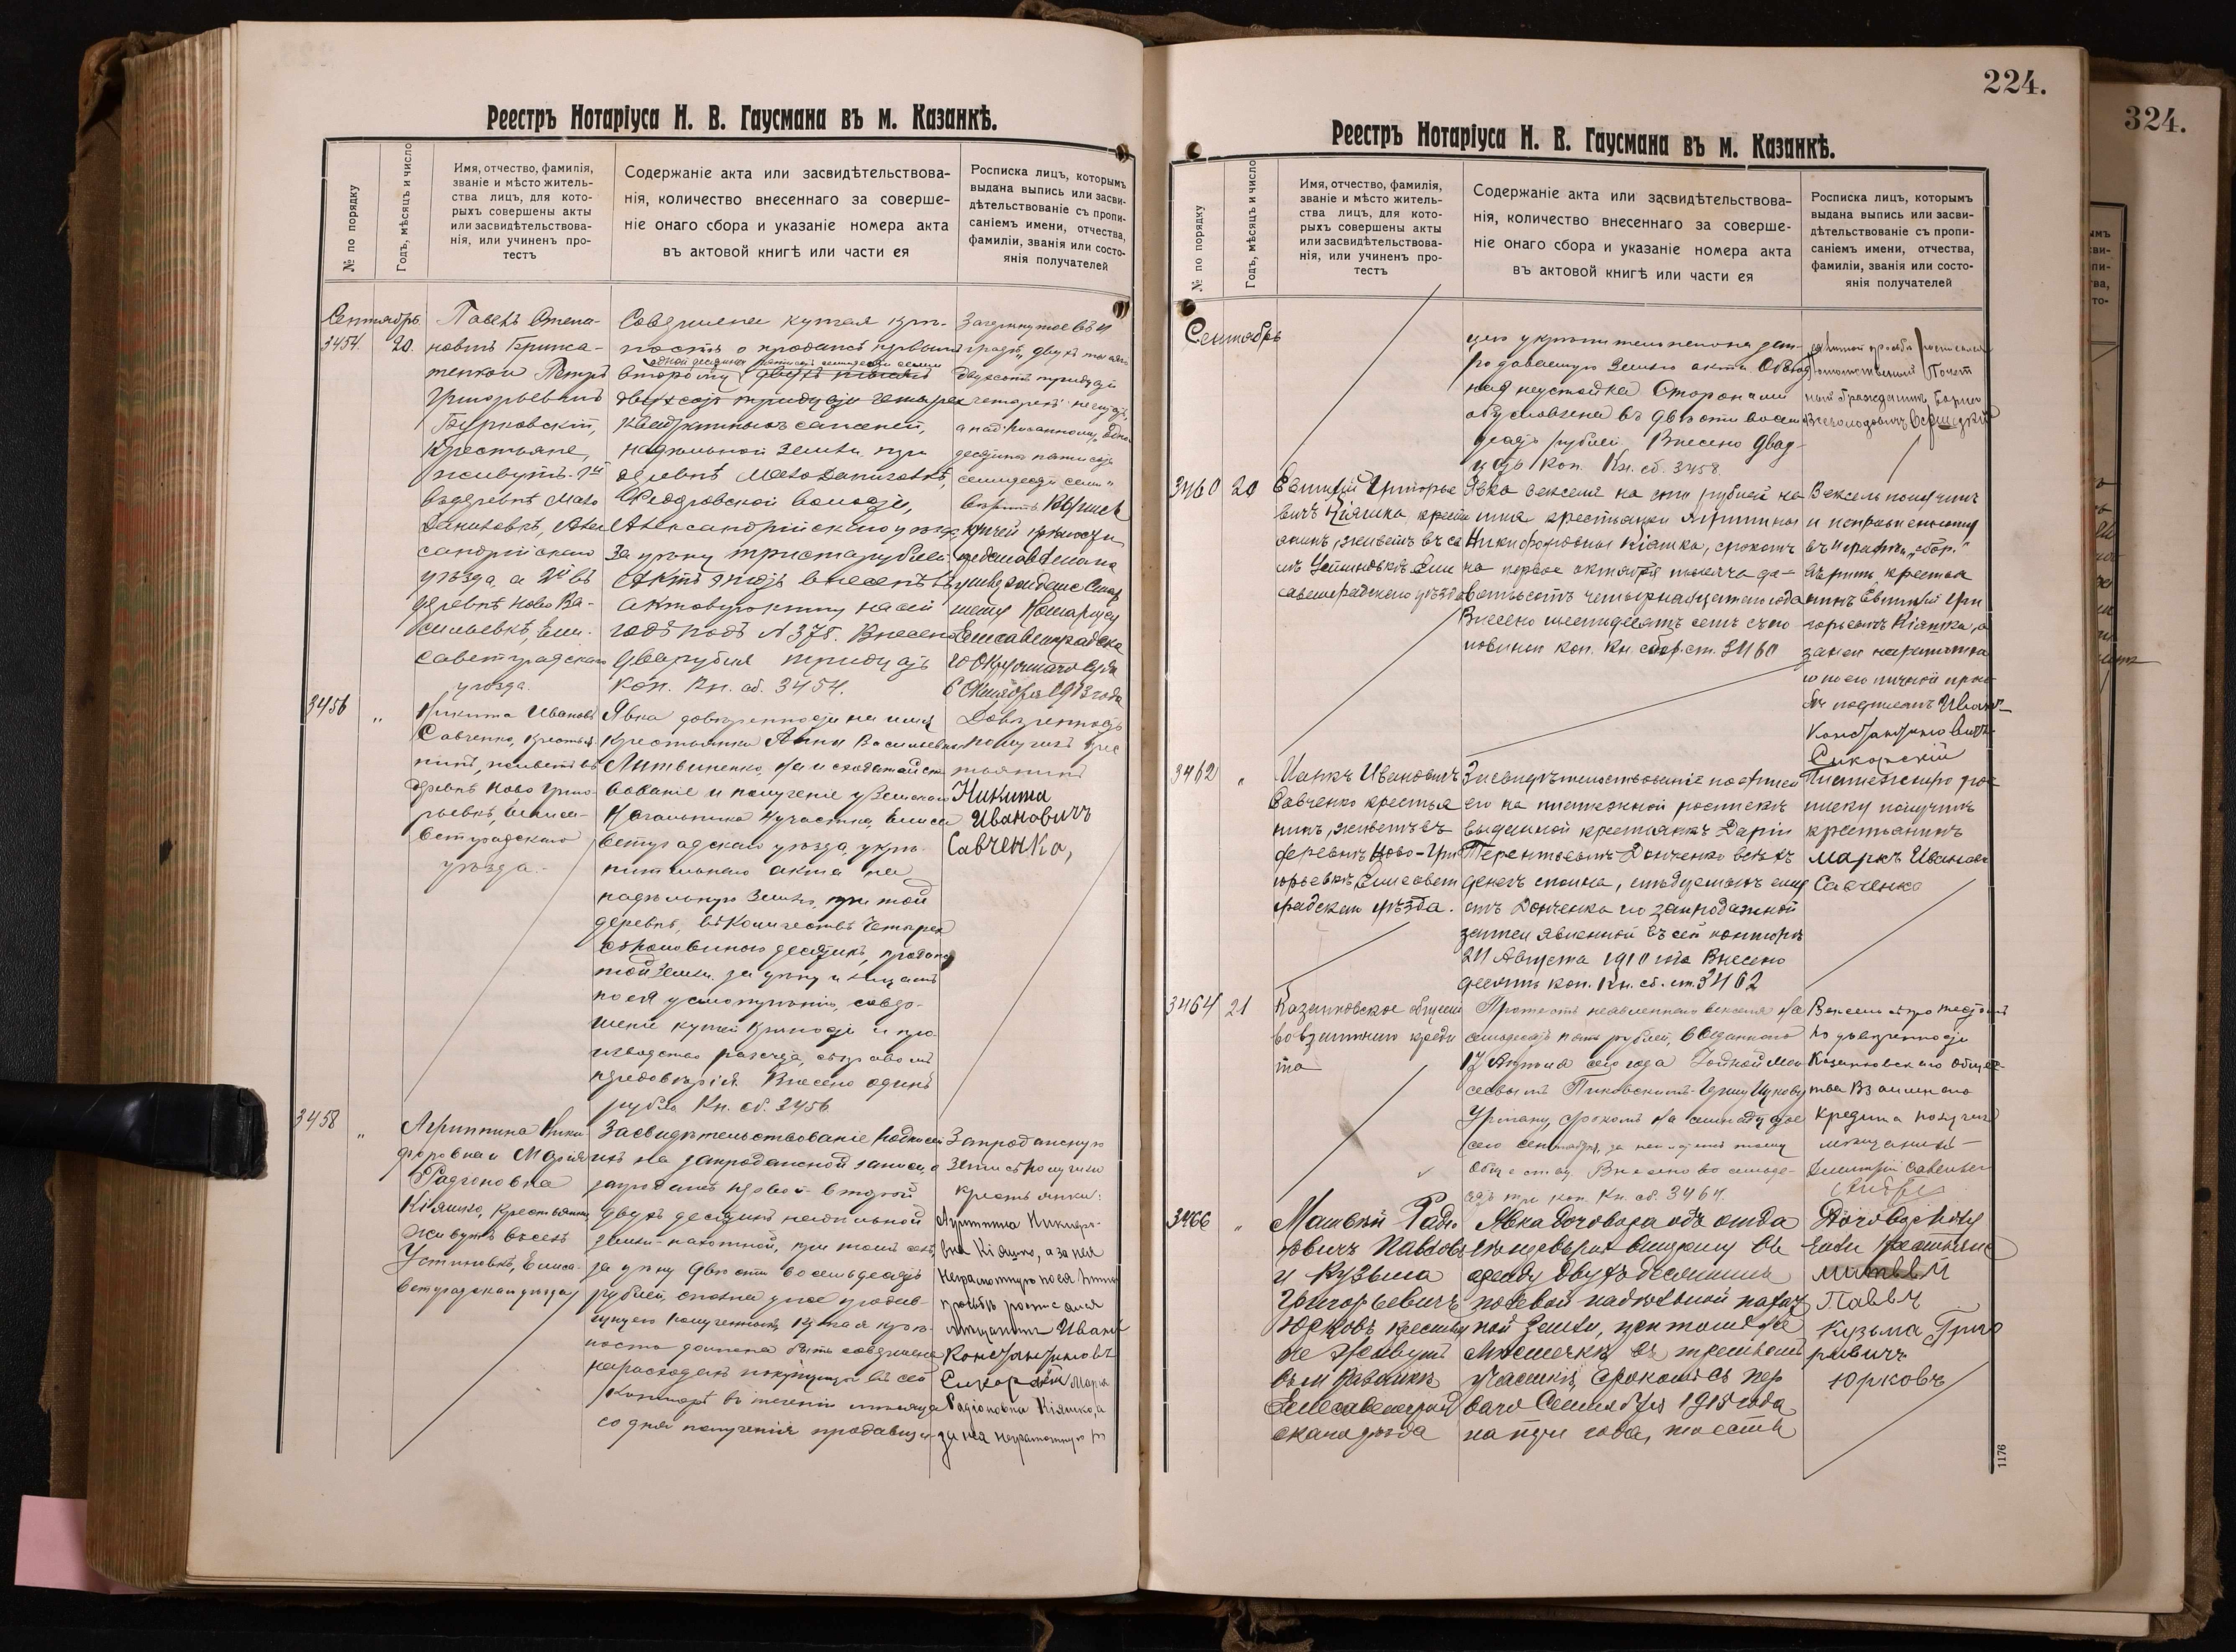 Реестръ Нотаріуса Н. В. Гаусмана въ м. Казанкѣ.
№ по порядку
Годъ, мѣсяцъ и число
Имя, отчество, фамилія,
званіе и мѣсто житель-
ства лицъ, для кото-
рыхъ совершены акты
или засвидѣтельствова-
нія, или учиненъ про-
тестъ
Содержаніе акта или засвидѣтельствова-
нія, количество внесеннаго за соверше-
ніе онаго сбора и указаніе номера акта
въ актовой книгѣ или части ея
Росписка лицъ, которымъ
выдана выпись или засви-
дѣтельствованіе съ пропи-
саніемъ имени, отчества,
фамиліи, званія или состо-
янія получателей
Сентябрь
3454. 20.
Павелъ Степа-
новичъ
Петръ
Григорьевичъ
Бурковскій,
крестьяне,
живутъ 1й
въ деревнѣ Мало
Даниловкѣ, Алек
сандрійскаго
уѣзда, а 2й въ
деревнѣ Ново Ва-
сильевкѣ, Ели-
саветградскаго
уѣзда.
Совершена купчая крѣ-
пость о продажѣ первымъ
второму
двухсотъ тридцати четырехъ
квадратныхъ саженей,
надѣльной земли при
деревнѣ Мало Даниловкѣ,
Федоровской волости,
Александрійскаго уѣзда
за цѣну триста рублей.
Актъ этотъ внесенъ въ
актовую книгу на сей
годъ подъ № 378. Внесено
два рубля тридцать
коп. Кн. сб. 3454.
Зачеркнутое въ 4
графѣ, двухъ тысячъ
двухсотъ тридцати
четырехъ не читать,
а надписанному, одна
десятина пятьсотъ
семьдесятъ семь"
вѣрить. Выпись
купчей крѣпости
представлена
Старшему Нотаріусу
Елисаветградска
го Окружнаго Суда
6 Октября 1913 года
3456 "
Никита Ивановъ
Савченко, крестья
нинъ, живетъ въ
деревнѣ Ново Григо-
рьевкѣ, Елиса-
ветградскаго
уѣзда.
Явка довѣренности на имя
крестьянки Анны Васильевны
Литвиненко, на исходатайст
вованіе и полученіе у Земскаго
Начальника 4 участка, Елиса
ветградскаго уѣзда, укрѣ
пительнаго акта на
надѣльную землю, при той
деревнѣ, въ количествѣ четырехъ
съ половиною десятинъ, продажу
той земли за цѣну и лицамъ
по ея усмотрѣнію, совер-
шеніе купчей крѣпости и про
изводство расчета, съ правомъ
передовѣрія. Внесено одинъ
рубль Кн. сб. 3456
Довѣренность
получилъ крес
тьянинъ
Никита
Ивановичъ
Савченко,
3458 "
Агриппина Ники
форовна и Марія
Радіоновна
Кіяшко, крестьянки,
живутъ въ селѣ
Устиновкѣ, Елиса-
ветградскаго уѣзда
Засвидѣтельствованіе подписей
ихъ на запродажной записи, о
запродажѣ первой второй
двухъ десятинъ надѣльной
земли пахотной, при томъ селѣ,
за цѣну двѣсти восемьдесятъ
рублей, сполна уже продав-
щицею полученныхъ, купчая крѣ-
пость должна быть совершена
на расходахъ покупщицы въ сей
конторѣ въ теченіи мѣсяца
со дня полученія продавщи-
Запродажную
запись получили
крестьянки:
Агриппина Никифо-
вна Кіяшко, а за нея
неграмотную по ея личной
просьбѣ росписался
мѣщанинъ Иванъ
Константиновъ
Сикорскій Марія
Радіоновна Кіяшко, а
за нея неграмотную по
224.
324.
Реестръ Нотаріуса Н. В. Гаусмана въ м. Казанкѣ.
№ по порядку
Годъ, мѣсяцъ и число
Имя, отчество, фамилія,
званіе и мѣсто житель-
ства лицъ, для кото-
рыхъ совершены акты
или засвидѣтельствова-
нія, или учиненъ про-
тестъ
Содержаніе акта или засвидѣтельствова-
нія, количество внесеннаго за соверше-
ніе онаго сбора и указаніе номера акта
въ актовой книгѣ или части ея
Росписка лицъ, которымъ
выдана выпись или засви-
дѣтельствованіе съ пропи-
саніемъ имени, отчества,
фамиліи, званія или состо-
янія получателей
Сентябрь
цею укрѣпительнаго на
продаваемую землю акта. Обоюд
ная неустойка Сторонами
обусловлена въ двѣсти восемь
десятъ рублей. Внесено двад-
цать коп. Кн. сб. 3458
личной просьбѣ росписался
потомственный Почет
ный Гражданинъ Борисъ
Всеволодовичъ
3460 20
Евтихій Григорье
вичъ Кіяшко, кресть
янинъ, живетъ въ се
лѣ Устиновкѣ Ели
саветградскаго уѣзда
Явка векселя на сто рублей на
имя крестьянки Агриппины
Никифоровны Кіяшко, срокомъ
на первое октября тысяча де-
вятьсотъ четырнадцатаго года
Внесено шестьдесятъ семь съ по
ловиной коп. Кн. сбор. ст. 3460
Вексель получилъ
и исправленному
въ 4 графѣ, "сбор."
вѣрить крестья
нинъ Евтихій Гри
горьевичъ Кіяшко, а
за неграмотна
го по его личной прось
бѣ подписалъ Иванъ
Константиновичъ
Сикорскій
3462 "
Маркъ Ивановичъ
Савченко крестья
нинъ, живетъ въ
деревнѣ Ново-Гри
горьевкѣ Елисавет
градскаго уѣзда.
Засвидѣтельствованіе подписи
его на платежной роспискѣ
выданной крестьянкѣ Даріи
Терентьевнѣ Донченко всѣхъ
денегъ сполна, слѣдуемыхъ ему
отъ Донченко по запродажной
записи явленной въ сей конторѣ
21 Августа 1910 года Внесено
десять коп. Кн. сб. ст. 3462
Платежную рос
писку получилъ
крестьянинъ
Маркъ Ивановъ
Савченко
3464 21
Казанковское общест
во взаимнаго креди
та
Протестъ неявленнаго векселя на
семьдесятъ пять рублей, выданнаго
17 Августа сего года
Урману, срокомъ на семнадцатое
сего сентября, за неплатежъ тому
Обществу. Внесено восемьде-
сятъ три коп. Кн. сб. 3464.
Вексель
по довѣренности
Казанковскаго Общест-
тва Взаимнаго
Кредита получилъ
мѣщанинъ
3466 "
Матвѣй Радіо
новичъ Павловъ
и Кузьма
Григорьевичъ
Юрковъ крестья
не живутъ
Елисаветград
скаго уѣзда
Явка договора объ отда
чѣ первымъ второму въ
аренду двухъ десятинъ
полевой надѣльной пахат
ной земли, при томъ же
мѣстечкѣ въ третьемъ
участкѣ, срокомъ съ пер
ваго Сентября 1915 года
на три года, то есть
Договоръ полу
чили крестьяне
Матвѣй
Павлъ
Кузьма Григо
рьевичъ
Юрковъ
1176